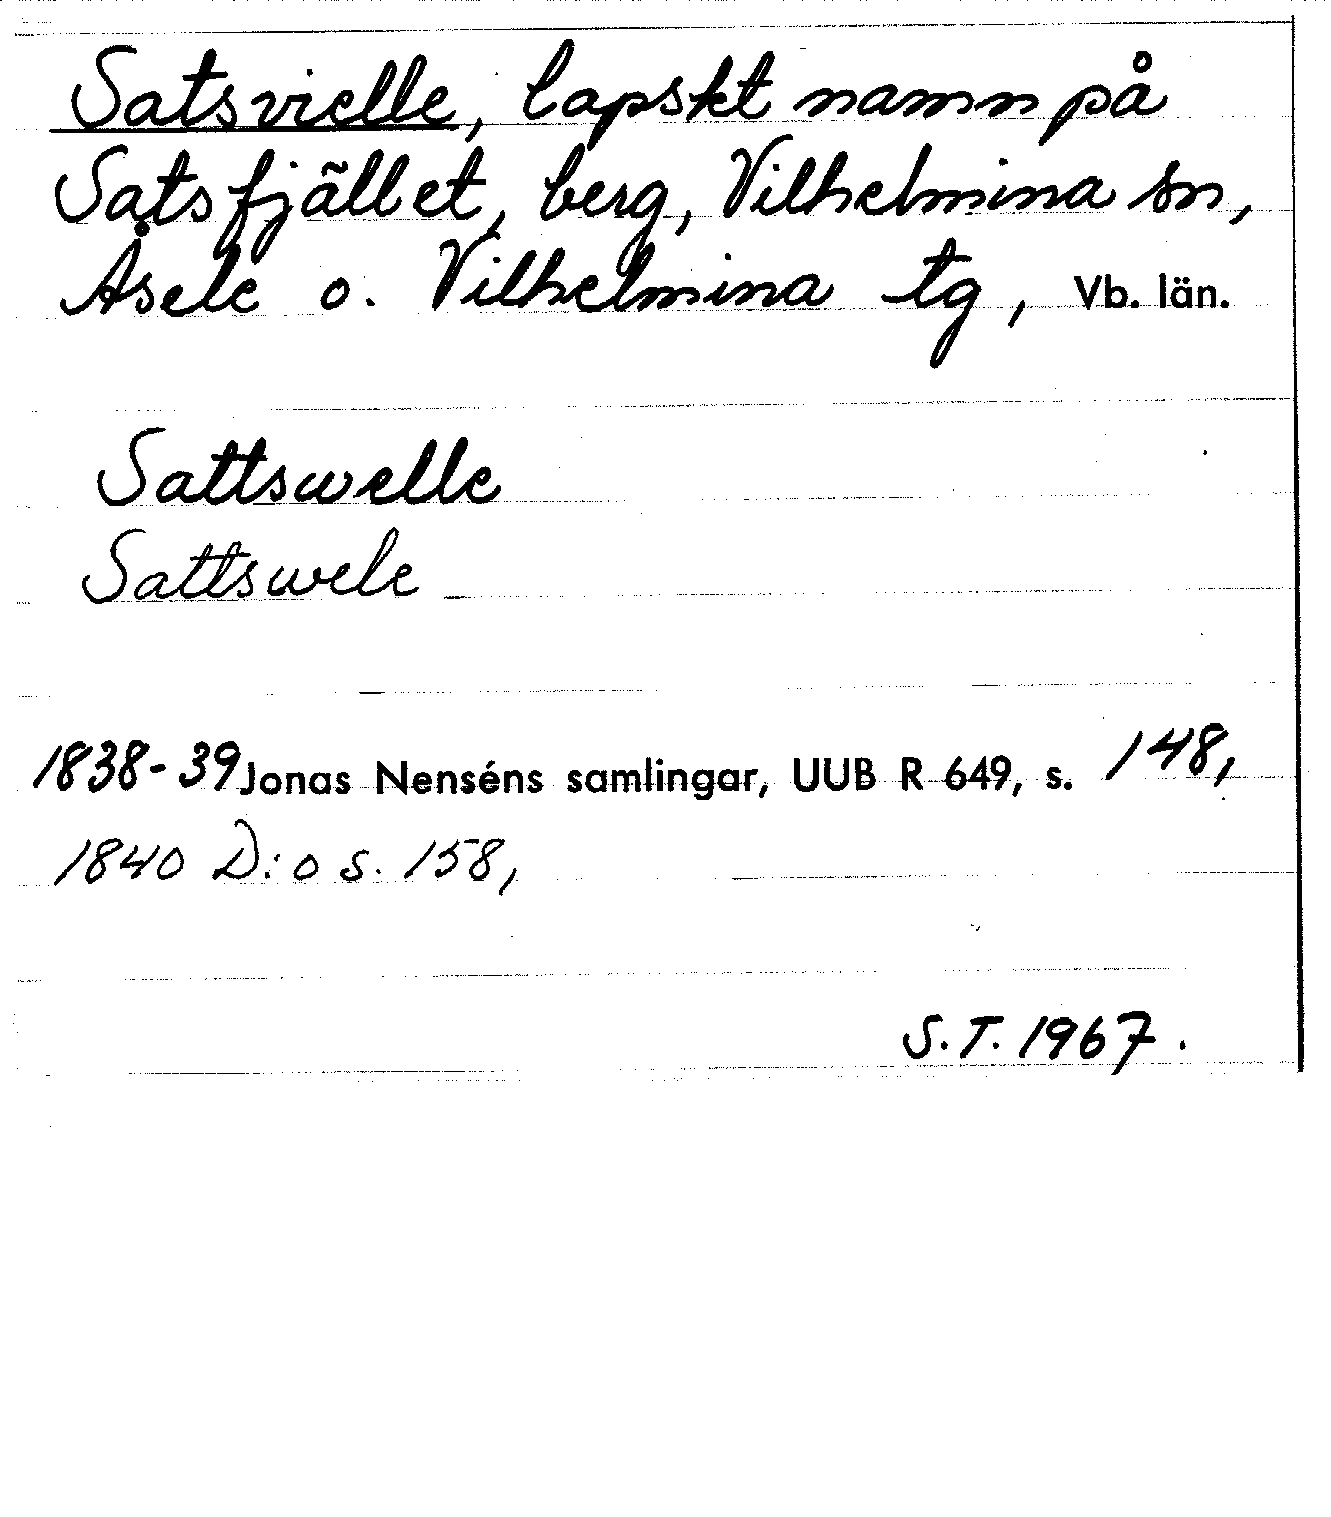 Satsvielle, lapskt namn på
Satsfjället, berg, Vilhelmina sn,
Åsele o. Vilhelmina tg, Vb. län.
Sattswelle
Sattswele
1838-39 Jonas Nenséns samlingar, UUB R 649, s. 148,
1840 D:o s. 158,
S.T. 1967.